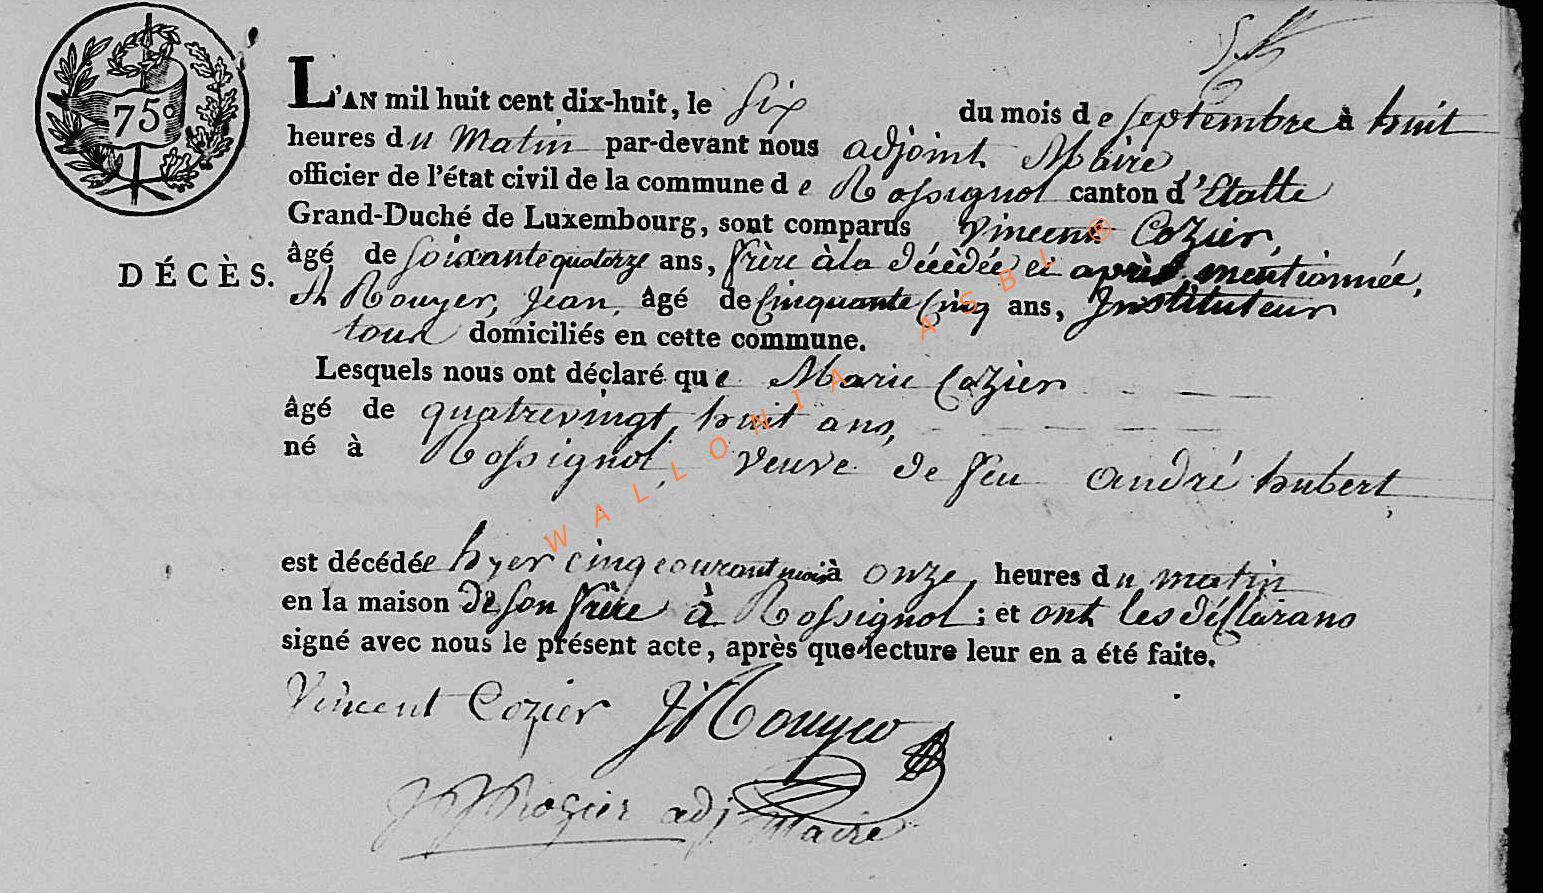 75c
L'AN mil huit cent dix-huit, le Six du mois de Septembre à huit
heures du Matin par-devant nous adjoint Maire
officier de l'état civil de la commune de Rossignol canton d'Etalle
Grand-Duché de Luxembourg, sont comparus Vincent Cozier,
âgé de Soixante quatorze ans, frère à la décédée ci après mentionnée,
DÉCÈS.
et Rouyer, Jean, âgé de Cinquante Cinq ans, Instituteur
tous domiciliés en cette commune.
Lesquels nous ont déclaré que Marie Cozier
âgé de quatrevingt huit ans,
né à Rossignol, veuve de feu André hubert,
est décédée hyer cinq courant mois à onze heures du matin
en la maison de son frère à Rossignol ; et ont les déclarans
signé avec nous le présent acte, après que lecture leur en a été faite.
Vincent Cozier J Rouyer
Rozier adj. Maire
WALLONIA ASBL ®